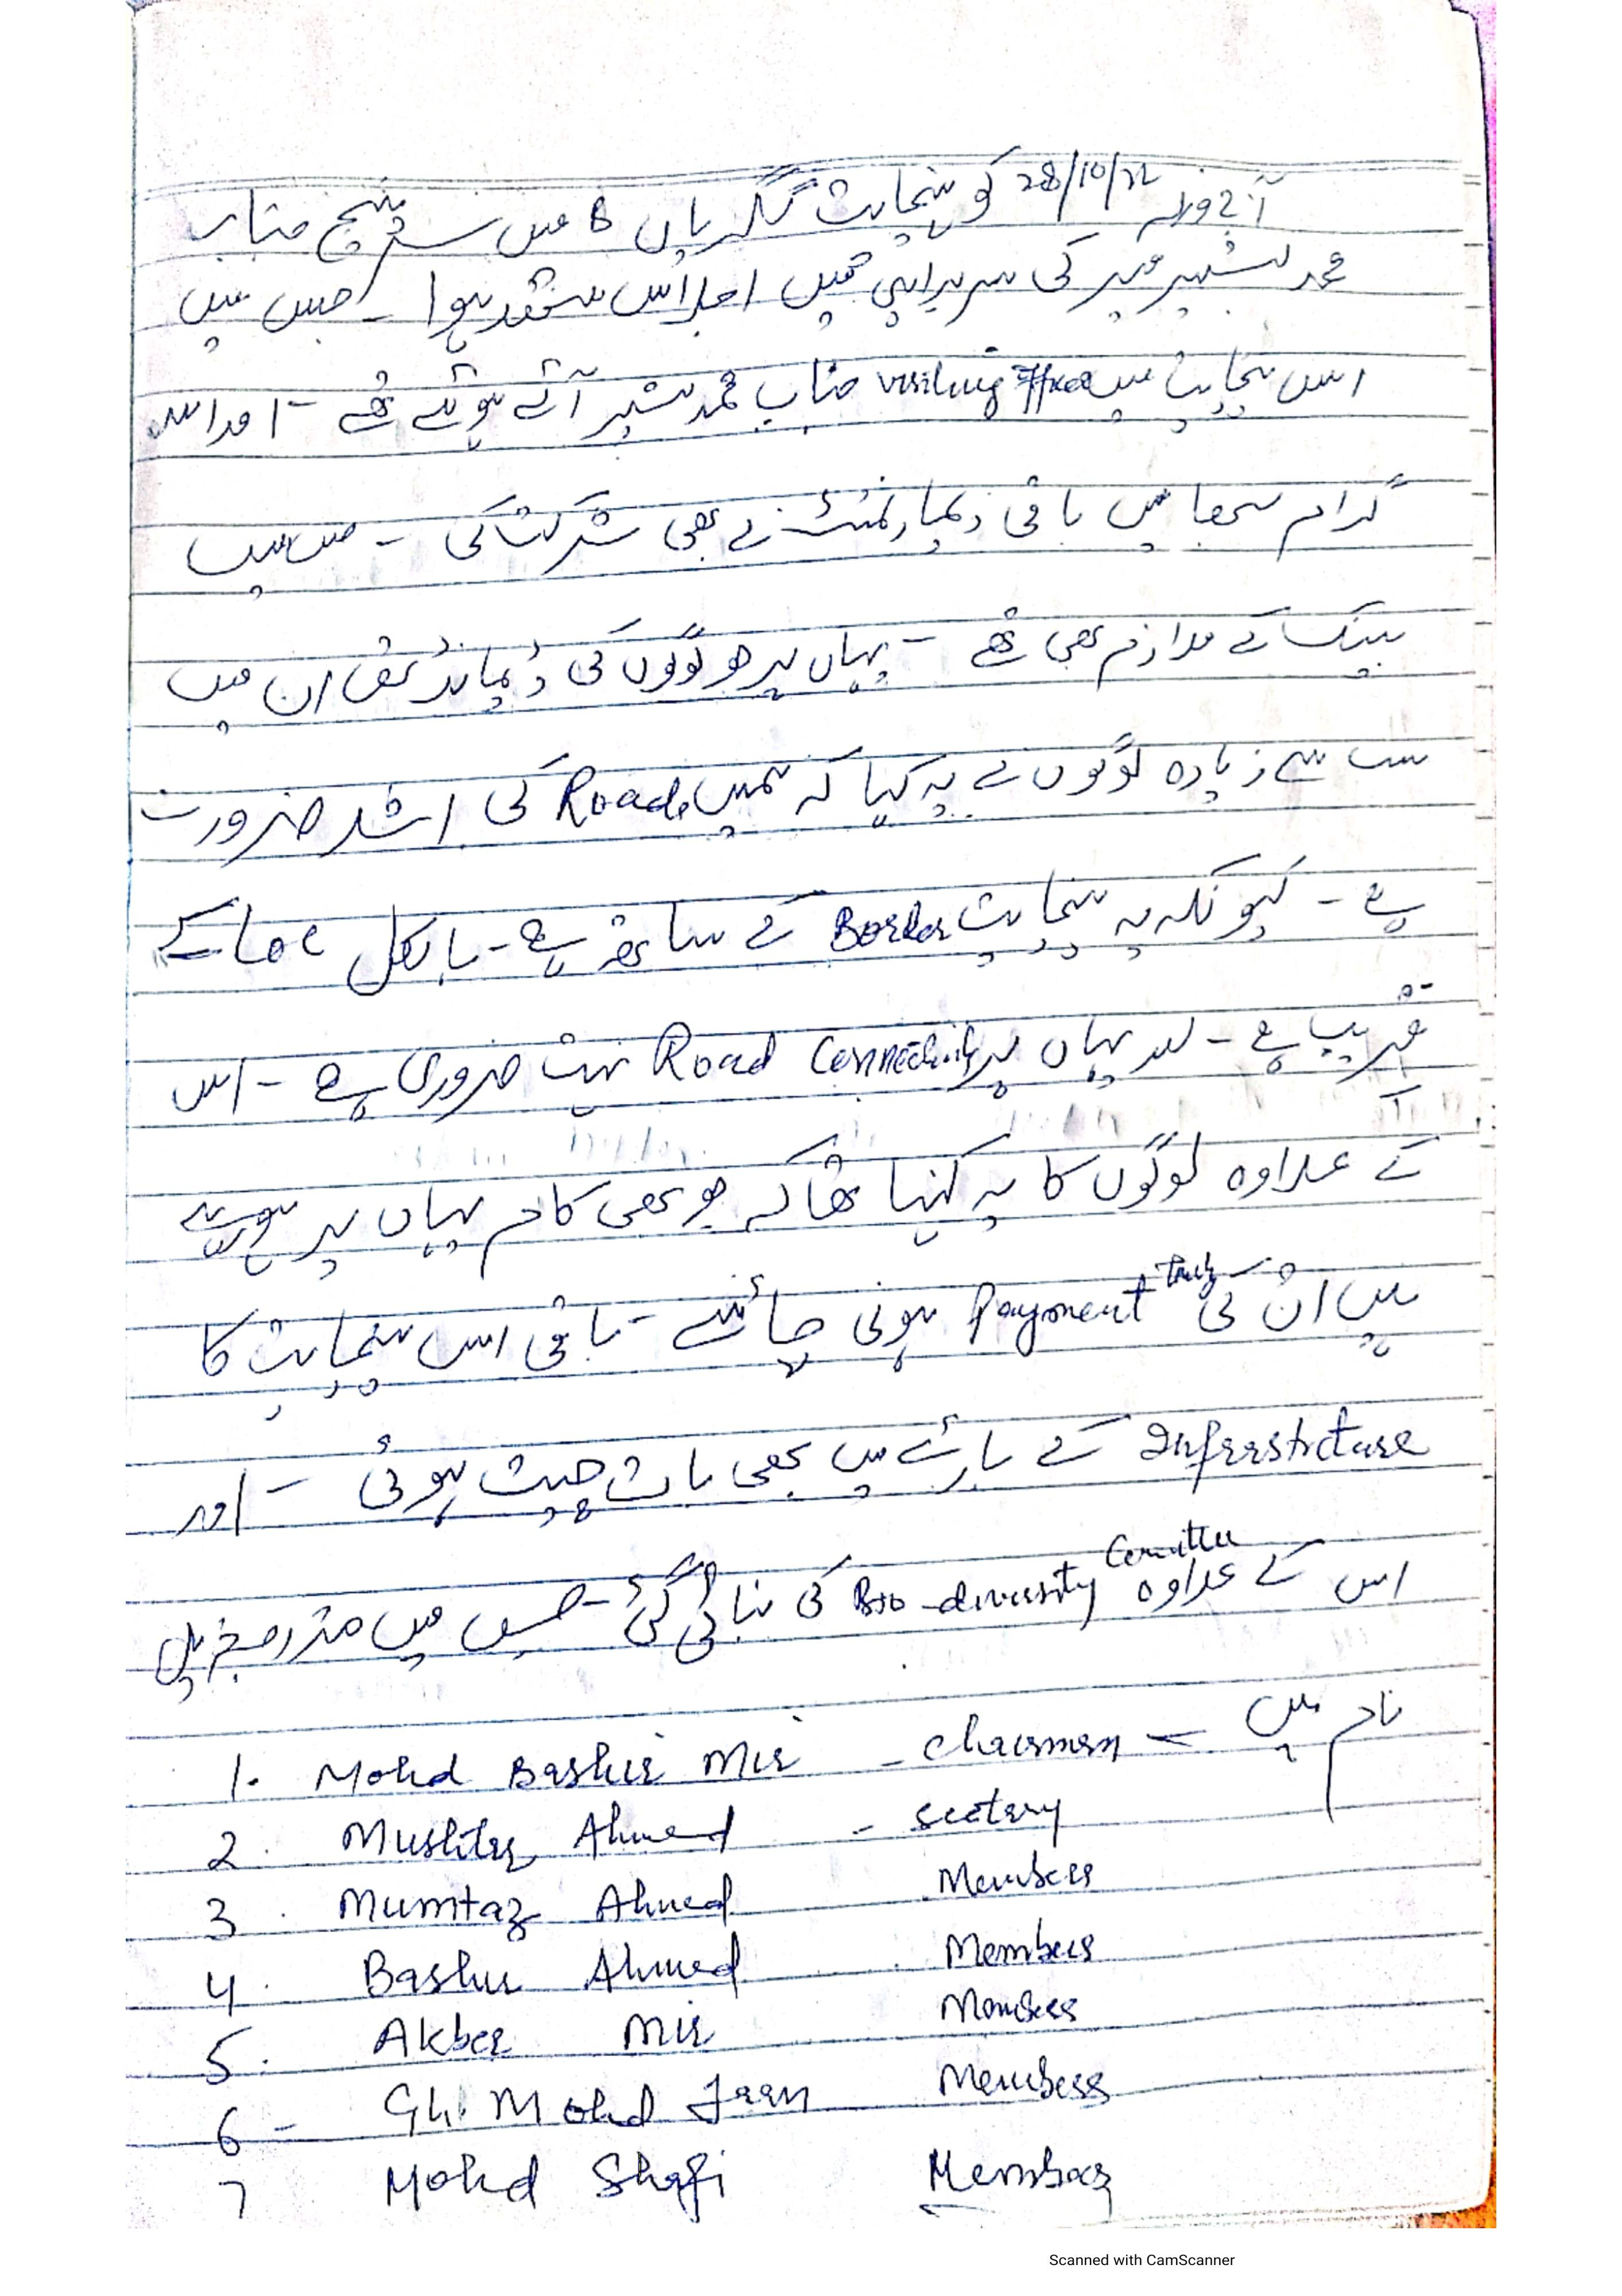 آج مورخہ 28/10/22 کو پنچایت گگڑیاں B میں سرپنچ جناب
محمد بشیر میر کی سربراہی میں اجلاس منعقد ہوا ۔ جس میں
اس پنچایت میں visiting officer جناب محمد بشیر آئے ہوئے تھے ۔ اور اس
گرام سبھا میں باقی ڈیپارٹمنٹ نے بھی شرکت کی ۔ جس میں
بینک کے ملازم بھی تھے ۔ یہاں پر جو لوگوں کی ڈیمانڈ تھی ان میں
سب سے زیادہ لوگوں نے یہ کہا کہ ہمیں Road کی اشد ضرورت
ہے ۔ کیونکہ یہ پنچایت Border کے ساتھ ہے ۔ بالکل Loc کے
قریب ہے ۔ اور یہاں پر Road Connectivity بہت ضروری ہے ۔ اس
کے علاوہ لوگوں کا یہ کہنا تھا کہ جو بھی کام یہاں پر ہو رہے
ہیں ان کی Payment ہونی چاہئے ۔ باقی اس پنچایت کا
Infrastrcture کے بارے میں بھی بات چیت ہوئی ۔ اور
اس کے علاوہ Bio-diversity Comittee کی بنائی گئی ۔ جس میں مندرجہ ذیل
نام ہیں
1. Mohd Bashir Mir - Chairman
2. Mushtaq Ahmed - Sectary
3. Mumtaz Ahmed Member
4. Bashir Ahmed Member
5. Akber Mir Member
6 - Gh. Mohd Jaan Member
7 Mohd Shafi Member
Scanned with CamScanner